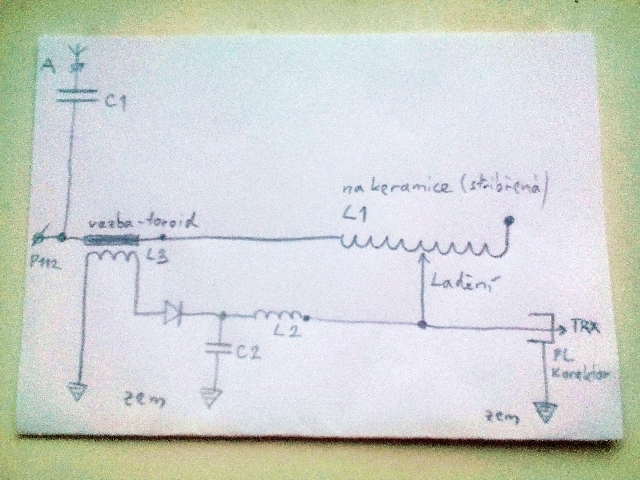 A
C1
na keramice (stribřená)
L1
vazba-toroid
L3
P112
Ladění
L2
TRX
C2
PL
Konektor
zem
zem